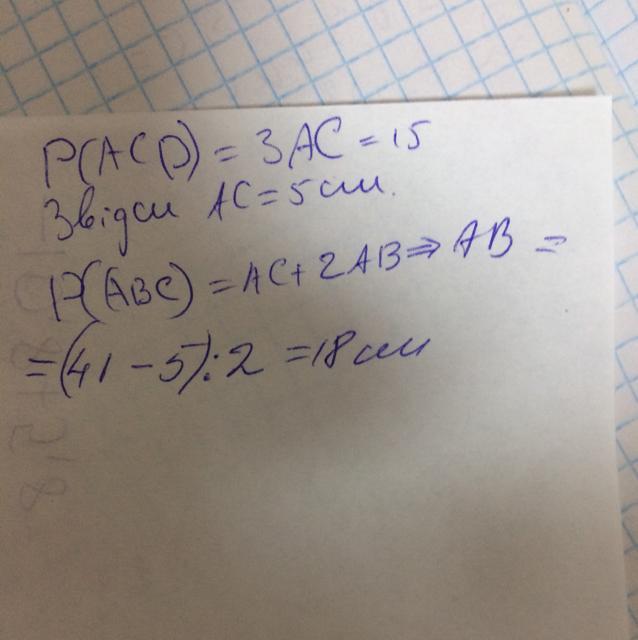 P(ACD) = 3AC = 15
Звідси AC = 5 см.
P(ABC) = AC + 2AB ⇒ AB =
= (41 - 5) : 2 = 18 см